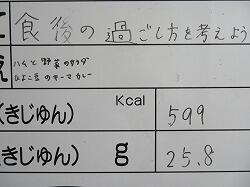 食後の過ごし方を考えよう
ハムと野菜のサラダ
ひよこ豆のキーマカレー
(きじゅん) Kcal 599
(きじゅん) g 25.8